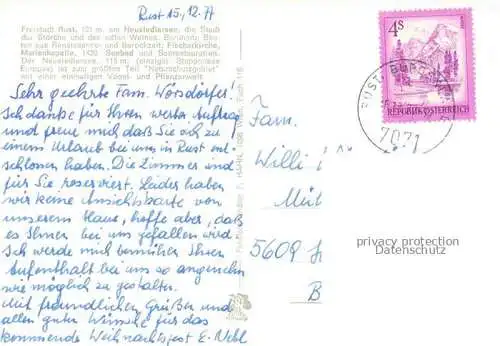 Rust 15.12.77
Freistadt Rust, 121 m, am Neusiedlersee, die Stadt
der Störche und des edlen Weines. Berühmte Bau-
ten aus Renaissance- und Barockzeit; Fischerkirche,
Marienkapelle, 1420, Seebad und
Der Neusiedlersee, 115 m, (einzig)
Europas) ist zum größten Teil "Naturschutzgebiet"
mit einer einmaligen Vogel- und Pflanzenwelt
Sehr geehrte Fam. Wörsdörfer!
Ich danke für Ihren werten Auftrag
und freue mich daß Sie sich zu
einem Urlaub bei uns in Rust ent-
schlossen haben. Die Zimmer sind
für Sie reserviert. Leider haben
wir keine Ansichtskarte von
unserem Haus, hoffe aber, daß
es Ihnen bei uns gefallen wird.
Ich werde mich bemühen Ihren
Aufenthalt bei uns so angenehm
wie möglich zu gestalten.
Mit freundlichen Grüßen und
allen guten Wünsche für das
kommende Weihnachtsfest E. Nebl
4S
REPUBLIK ÖSTERREICH
RUST, BURG
7071
Fam.
Willi
Mül
5609
B
privacy protection
Datenschutz